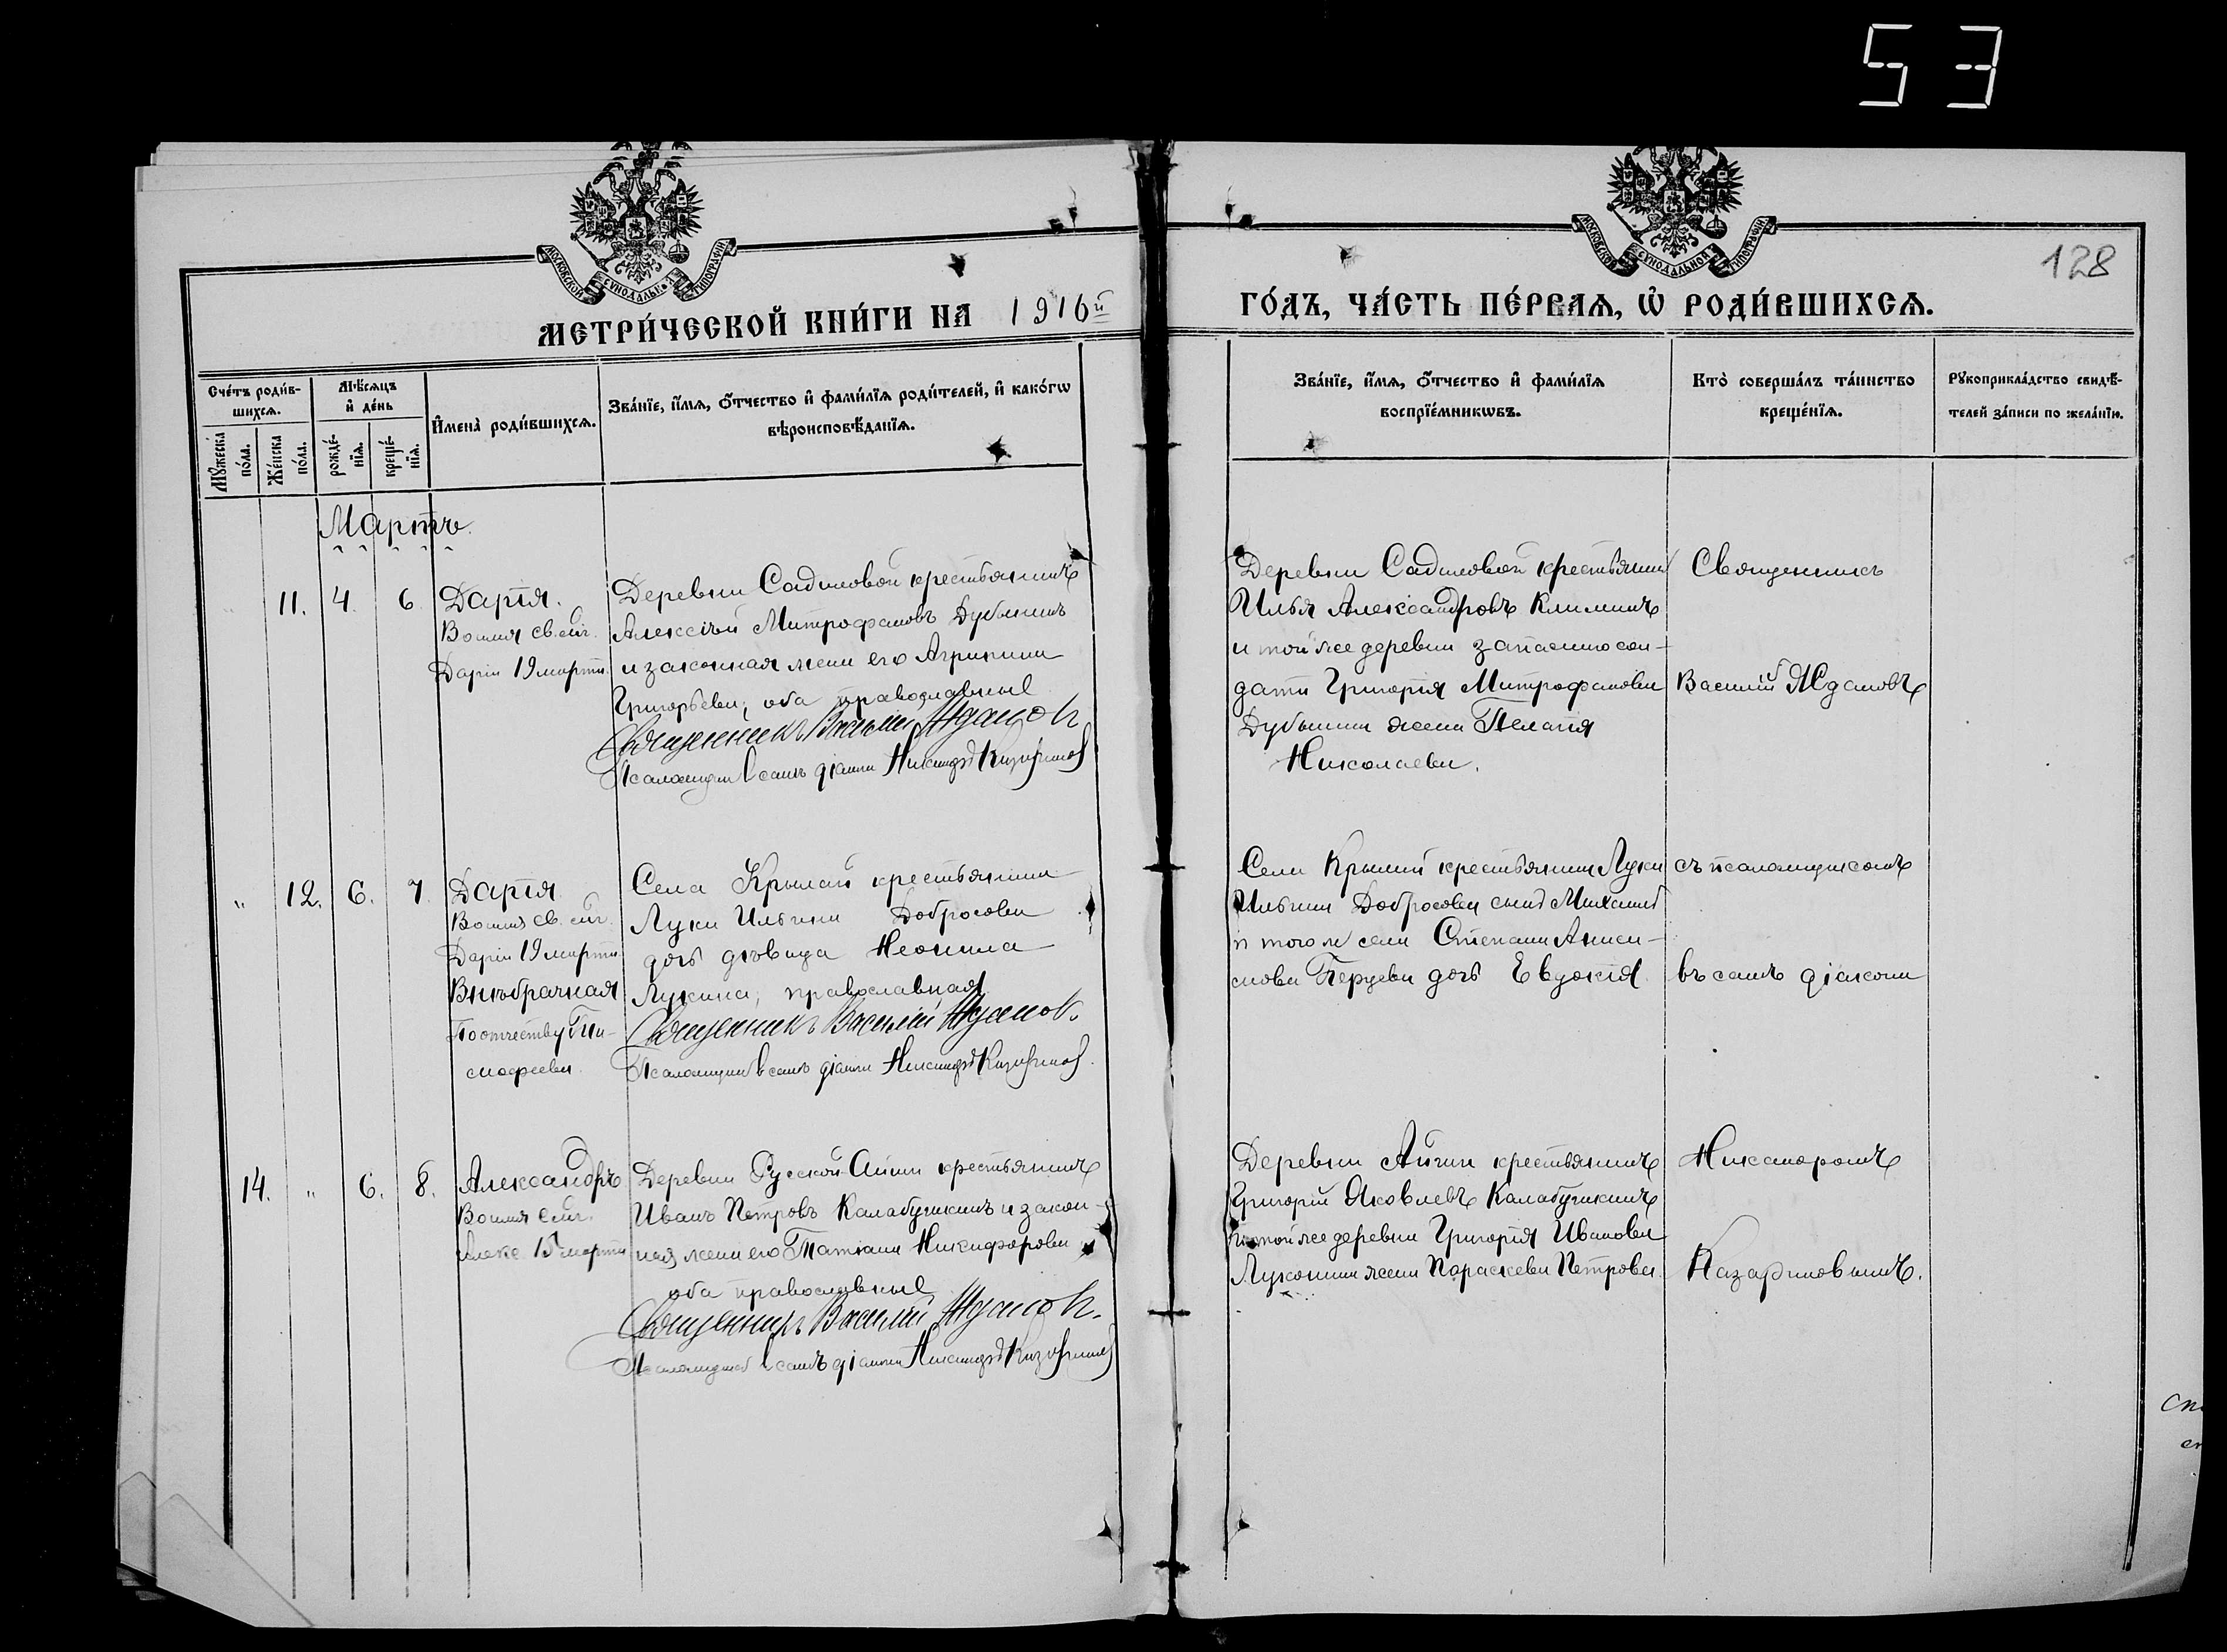 53
128
МОСКОВСКОЙ СѴНОДАЛЬНОЙ ТИПОГРАФІИ
МОСКОВСКОЙ СѴНОДАЛЬНОЙ ТИПОГРАФІИ
МЕТРИ́ЧЕСКОЙ КНИ́ГИ НА 1916й ГО́ДЪ, ЧА́СТЬ ПЕ́РВАѦ, Ѡ҆ РОДИ́ВШИХСѦ.
Сче́тъ роди́в-
шихсѧ.
Мꙋ́жеска по́ла.
Же́нска по́ла.
Мѣ́сѧцъ
и҆ де́нь
рожде́-
нїѧ.
креще́-
нїѧ.
И҆мена̀ роди́вшихсѧ.
Зва́нїе, и҆́мѧ, ѻ҆́тчество и҆ фами́лїѧ роди́телей, и҆ како́гѡ
вѣроисповѣ́данїѧ.
Зва́нїе, и҆́мѧ, ѻ҆́тчество и҆ фами́лїѧ
воспрїе́мникѡвъ.
Кто̀ соверша́лъ та́инство
креще́нїѧ.
Рꙋкоприкла́дство свидѣ́-
телей за́писи по жела́нїю.
Мартъ.
11. 4. 6. Дарія.
Во имя св. муч.
Даріи 19 марта.
Деревни крестьянинъ
Алексѣй Митрофановъ Дубынинъ
и законная жена его Агрипина
Григорьева; оба православные
Священникъ Василій Жданов
Псаломщик в санѣ діакона
Деревни крестьянин
Илья Александровъ Климинъ
и той же деревни запаснаго сол-
дата Григорія Митрофанова
Дубынина жена Пелагія
Николаева.
Священникъ
Василій Ждановъ
" 12. 6. 7. Дарія.
Во имя св. муч.
Даріи 19 марта
Внѣбрачная
По отчеству Ти-
мофеева.
Села крестьянина
Луки Ильина Добросова
дочь дѣвица Неонила
Лукина; православная
Священникъ Василій Жданов.
Псаломщик в санѣ діакона
Села крестьянина Луки
Ильина Добросова сынъ Михаилъ
и того же села Степана Аниси-
мова дочь Евдокія
съ псаломщикомъ
въ санѣ діакона
14. " 6. 8. Александръ
Во имя муч.
Алекс. 15 марта
Деревни Русской Айши крестьянинъ
Иванъ Петровъ Калабушкинъ и закон-
ная жена его Татіана Никифорова
оба православные
Священникъ Василій Жданов.
Псаломщик в санѣ діакона
Деревни крестьянинъ
Григорій Яковлевъ Калабушкинъ
и той же деревни Григорія Иванова
жена Параскева Петрова.